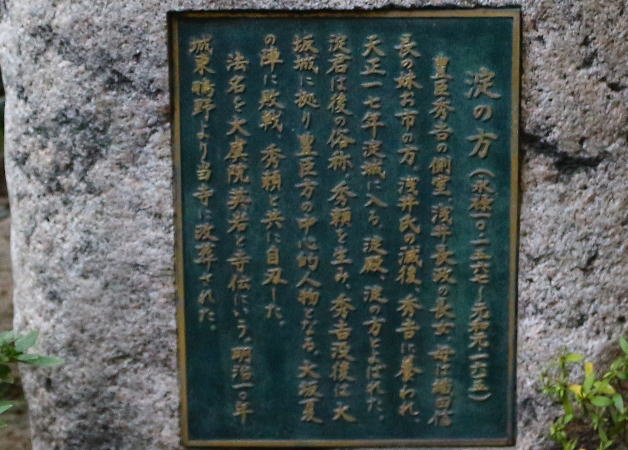 淀の方（永禄一〇・一五六七ー元和元・一六一五）
豊臣秀吉の側室、浅井長政の長女、母は織田信
長の妹お市の方、浅井氏の滅後、秀吉に養われ、
天正一七年淀城に入る。淀殿、淀の方とよばれた。
淀君は後の俗称、秀頼を生み、秀吉没後は大
坂城に拠り豊臣方の中心的人物となる。大坂夏
の陣に敗戦、秀頼と共に自刃した。
法名を大虞院英岩と寺伝にいう。明治一〇年
城東鴫野より当寺に改葬された。